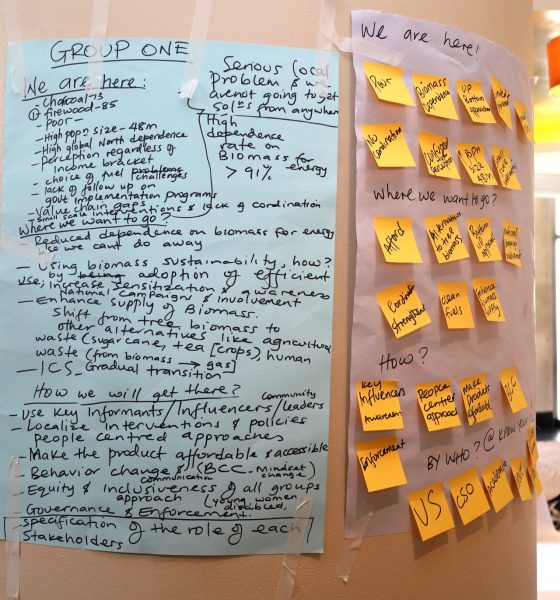 GROUP ONE
We are here:
- Charcoal-13
① firewood-85
- Poor-
- High popn size-48m
- High global North dependence
- Perception regardless of
Income bracket
- choice of fuel challenges
- lack of follow up on
govt implementation programs
- Value chain gaps
- small scale interventions & lack of cordination
Serious local
Problem & we
are not going to get
Solns from anywhere
High
dependence
rate on
Biomass for energy
> 91%
Where we want to go?
Reduced dependence on biomass for energy
(so we cant do away
- Using biomass sustainability, how?
by being adoption of efficient
use; Increase sensitization & awareness
National Campaigns & Involvement
- Enhance supply of Biomass.
Shift from tree biomass to
other alternatives like agricultural
waste (sugarcane, tea [crops), human
waste (from biomass → gas)
- ICS_Gradual transition
How we will get there?
- Use key Informants/Influencers/leaders
community
- Localize Interventions & policies
people centred approaches
- Make the product affordable & accessible
- Behavior change & (BCC - Mindset
communication change
- Equity & Inclusiveness of all groups
approach (young women
disabled,
- Governance & Enforcement.
Specification of the role of each
Stakeholders
We are here!
Poor
Biomass dependence
UP Bottom approach
No Coordination
POPN SIZE 48M
Where we want to go?
Afford
Alternatives to tree biomass
Bottom up approach
Coordination Strengthen
Clean fuels
Enhance Biomass supply
How?
Key Influencers
Awareness
People centred approach
Make product affordable
BCC
Enforcement
BY WHO? @ KNOW YOUR
US
CSO
Academia